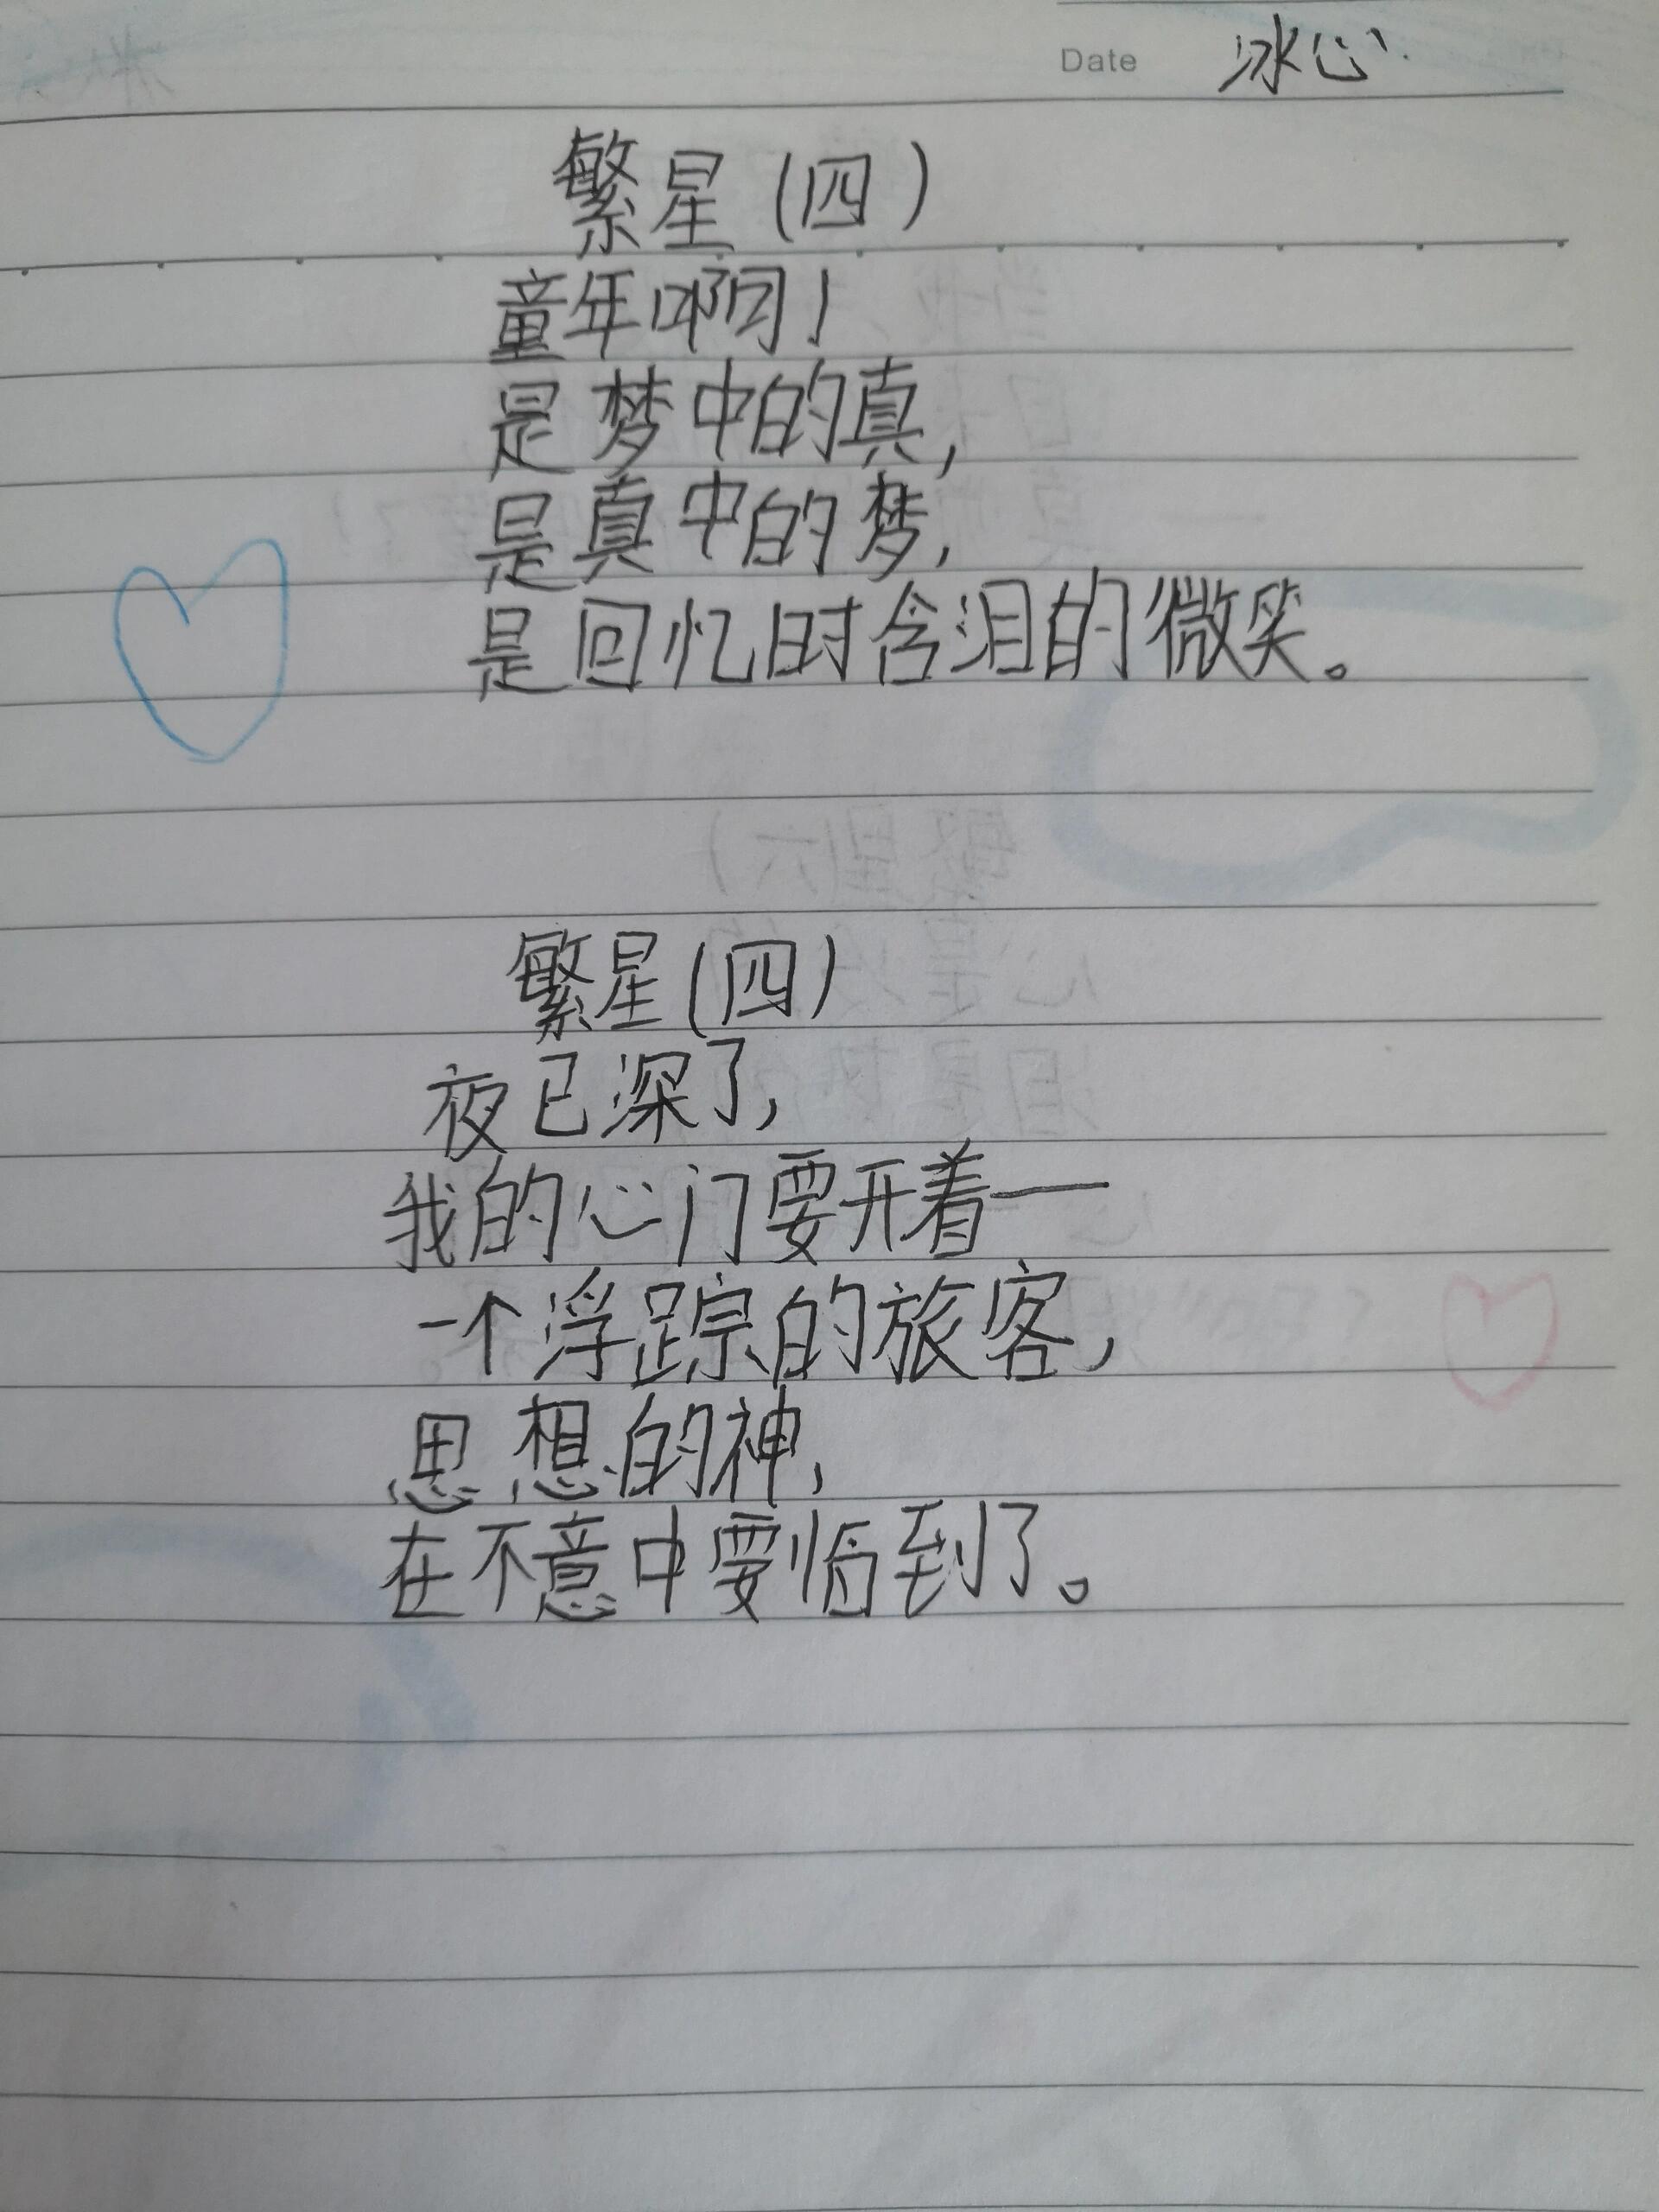 Date 冰心
繁星(四)
童年啊!
是梦中的真,
是真中的梦,
是回忆时含泪的微笑。
繁星(四)
夜已深了,
我的心门要开着—
一个浮踪的旅客,
思想的神,
在不意中要临到了。